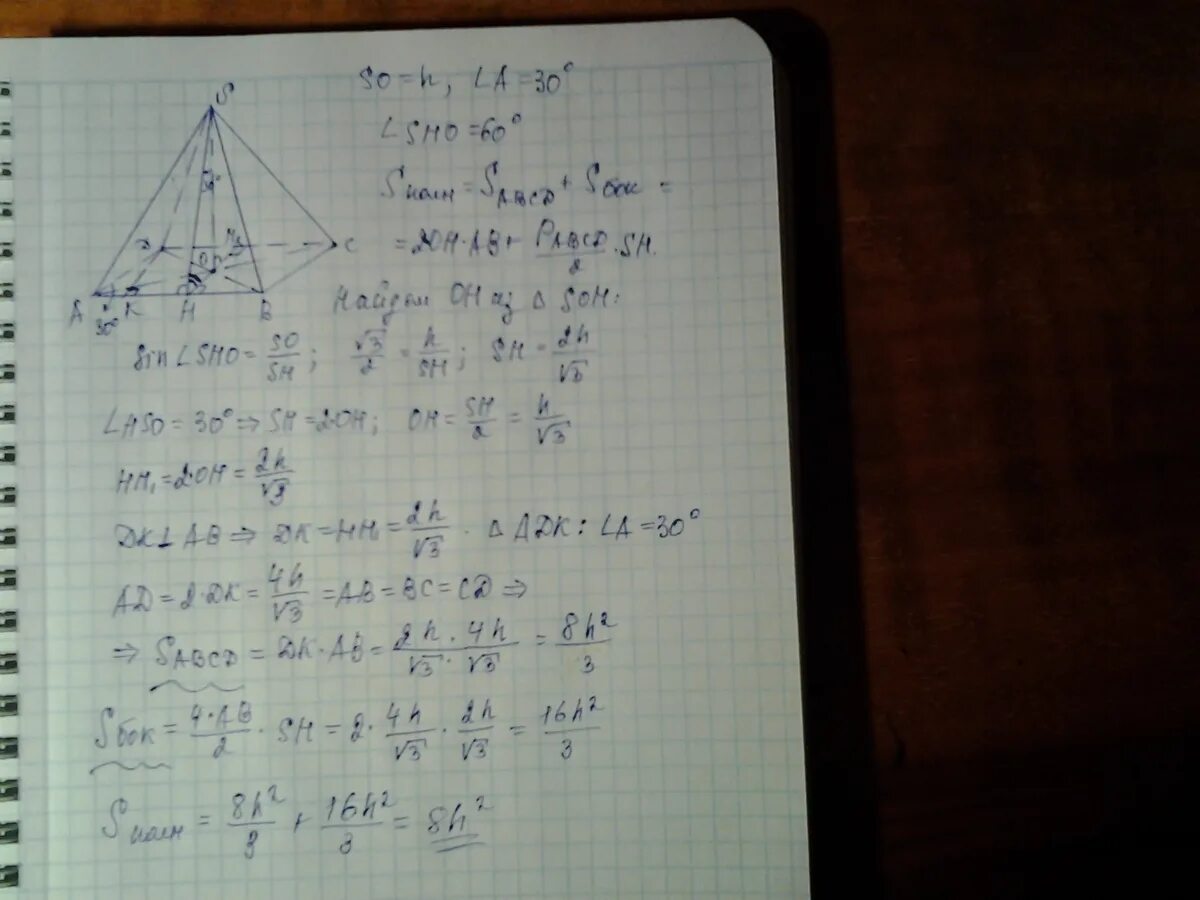 SO = h, ∠A = 30°
∠SHO = 60°
Sполн = S_ABCD + Sбок =
= 2OH·AB + P_ABCD/2 · SH.
Найдем OH из △ SOH:
S
D
H₁
C
O
A
K
H
B
30°
sin∠SHO = SO/SH; √3/2 = h/SH; SH = 2h/√3
∠ASO = 30° ⇒ SH = 2·OH; OH = SH/2 = h/√3
HH₁ = 2·OH = 2h/√3
DK⊥AB ⇒ DK = HH₁ = 2h/√3. △ ADK: ∠A = 30°
AD = 2·DK = 4h/√3 = AB = BC = CD ⇒
⇒ S_ABCD = DK·AB = 2h·4h/√3·√3 = 8h²/3
Sбок = 4·AB/2 · SH = 2·4h/√3·2h/√3 = 16h²/3
Sполн = 8h²/3 + 16h²/3 = 8h²